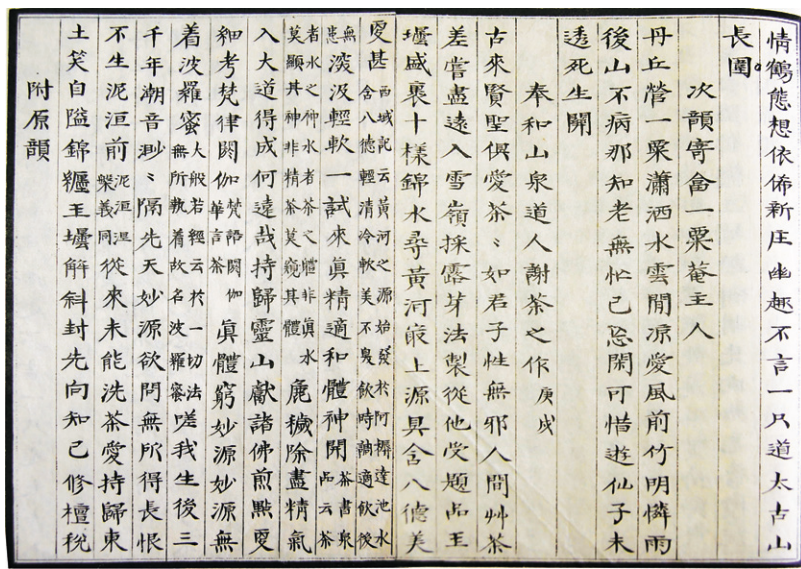 情鶴態想依俙新庄幽趣不言一只道太古山
長圍
次韻寄畣一粟菴主人
丹丘營一粟瀟洒水雲閒凉愛風前竹明憐雨
後山不病那知老無忙已忘閑可惜遊仙子未
透死生関
奉和山泉道人謝茶之作庚戌
古來賢聖俱愛茶〻如君子性無邪人間艸茶
差嘗盡遠入雪嶺採露芽法製從他受題品玉
壜盛裹十樣錦水尋黃河㝡上源具含八德美
更甚西域記云黃河之源始發於阿耨達池水含八德輕清冷軟美不臭飲時調適飲後
無患深汲輕軟一試來眞精適和體神開茶書泉品云茶
者水之神水者茶之體非眞水莫顯其神非精茶莫窺其體麁穢除盡精氣
入大道得成何遠哉持歸靈山獻諸佛煎點更
細考梵律閼伽梵語閼伽華言茶眞體窮妙源妙源無
着波羅蜜大般若經云於一切法無所執着故名波羅蜜嗟我生後三
千年潮音渺〻隔先天妙源欲問無所得長恨
不生泥洹前泥洹涅槃義同從來未能洗茶愛持歸東
土笑自隘錦纒玉壜解斜封先向知己修檀稅
附原韻